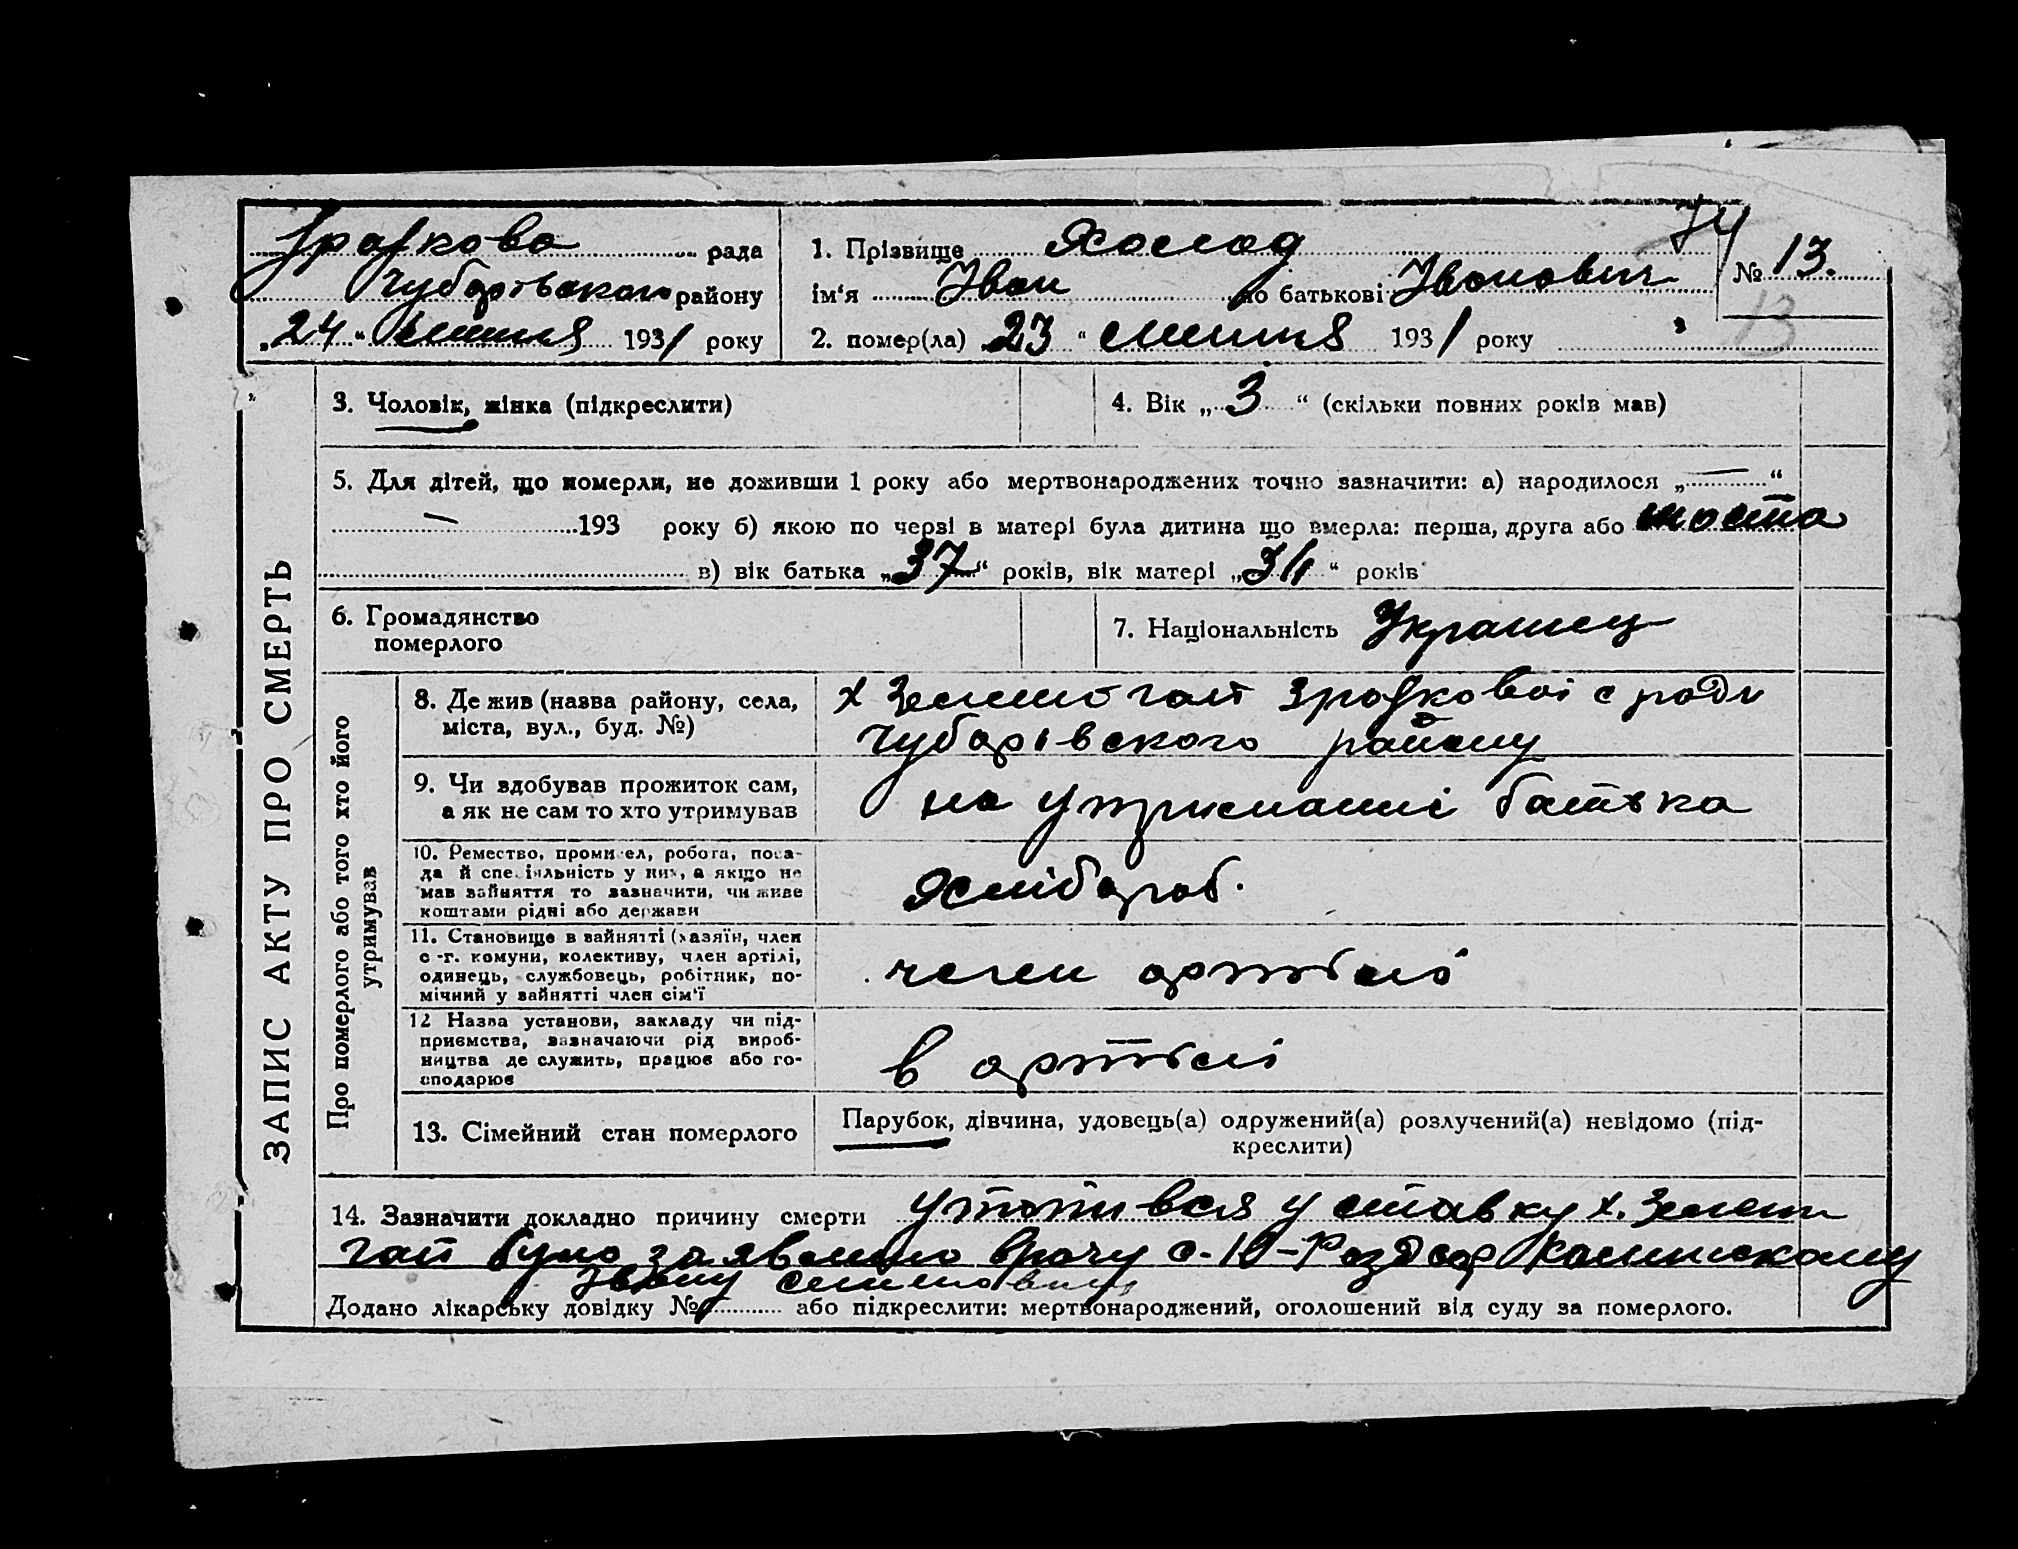 Градкова рада
Чубарівского району
„24“ липня 1931 року
1. Прізвище Холод
74
№ 13.
ім'я Іван по батькові Іванович
13
2. помер(ла) 23 “ липня 1931 року
ЗАПИС АКТУ ПРО СМЕРТЬ
3. Чоловік, жінка (підкреслити)
4. Вік „3“ (скільки повних років мав)
5. Для дітей, що померли, не доживши 1 року або мертвонароджених точно зазначити: а) народилося „—“
— 193 року б) якою по черзі в матері була дитина що вмерла: перша, друга або шоста
в) вік батька „37“ років, вік матері „34“ років
6. Громадянство
померлого
7. Національність Українец
Про померлого або того хто його
утримував
8. Де жив (назва району, села,
міста, вул., буд. №)
х Зелений гай с ради
Чубарівского району
9. Чи здобував прожиток сам,
а як не сам то хто утримував
на утриманні батька
10. Ремество, промисел, робота, поса-
да й спеціяльність у них, а якщо не
мав зайняття то зазначити, чи живе
коштами рідні або держави
Хлібороб.
11. Становище в зайнятті (хазяїн, член
с.-г. комуни, колективу, член артілі,
одинець, службовець, робітник, по-
мічний у зайнятті член сім'ї
член артілі
12 Назва установи, закладу чи під-
приємства, зазначаючи рід вироб-
ництва де служить, працює або го-
сподарює
в артілі
13. Сімейний стан померлого
Парубок, дівчина, удовець(а) одружений(а) розлучений(а) невідомо (під-
креслити)
14. Зазначити докладно причину смерти утопився у ставку х. Зелен
гай було заявлено врачу с. Ю-Роздор Калинскому
Івану Семеновичу
Додано лікарську довідку № або підкреслити: мертвонароджений, оголошений від суду за померлого.